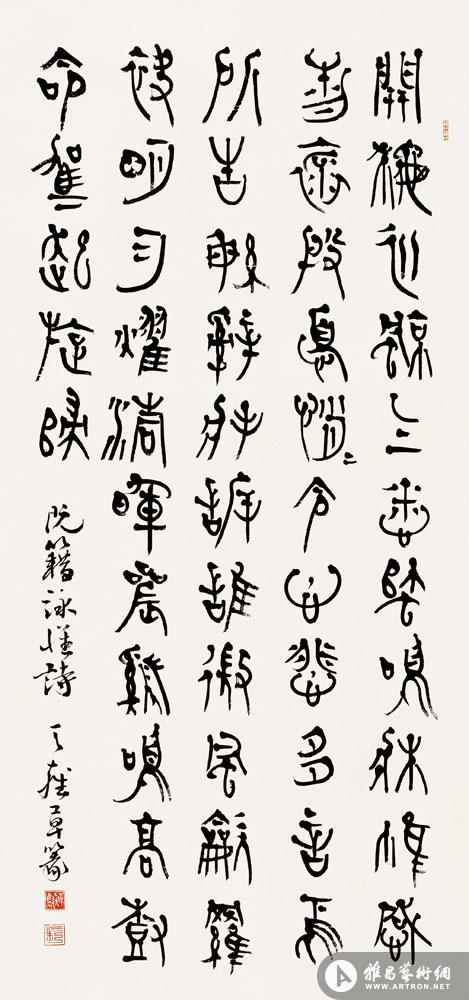 開秋兆涼气蟋蟀鳴牀帷感
物懷殷憂悄〻令心悲多言焉
所告繁辭將訴誰微風吹羅
袂明月耀清暉晨雞鳴高樹
命駕起旋歸
阮籍詠懷詩 草篆
雅昌藝術網
WWW.ARTRON.NET